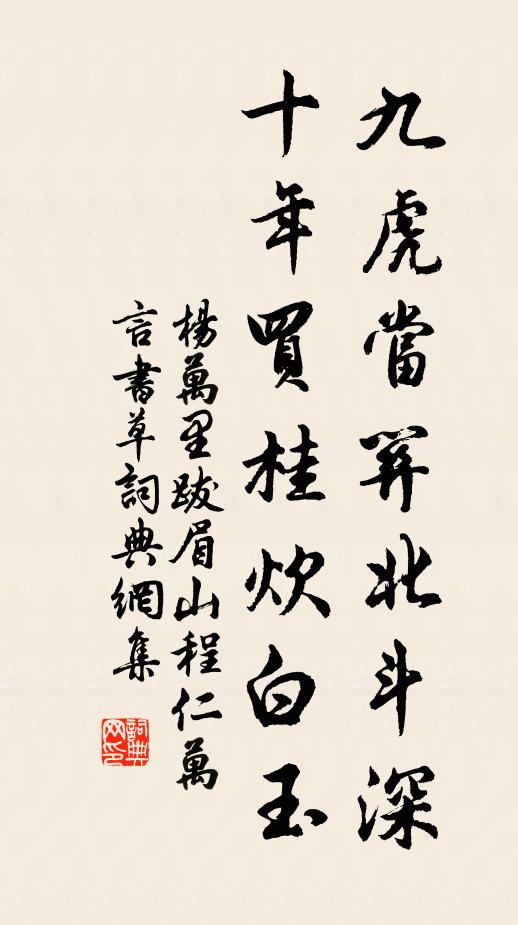 九虎當關北斗深
十年買桂炊白玉
楊萬里跋眉山程仁萬
言書草詞典網集
詞典
网印